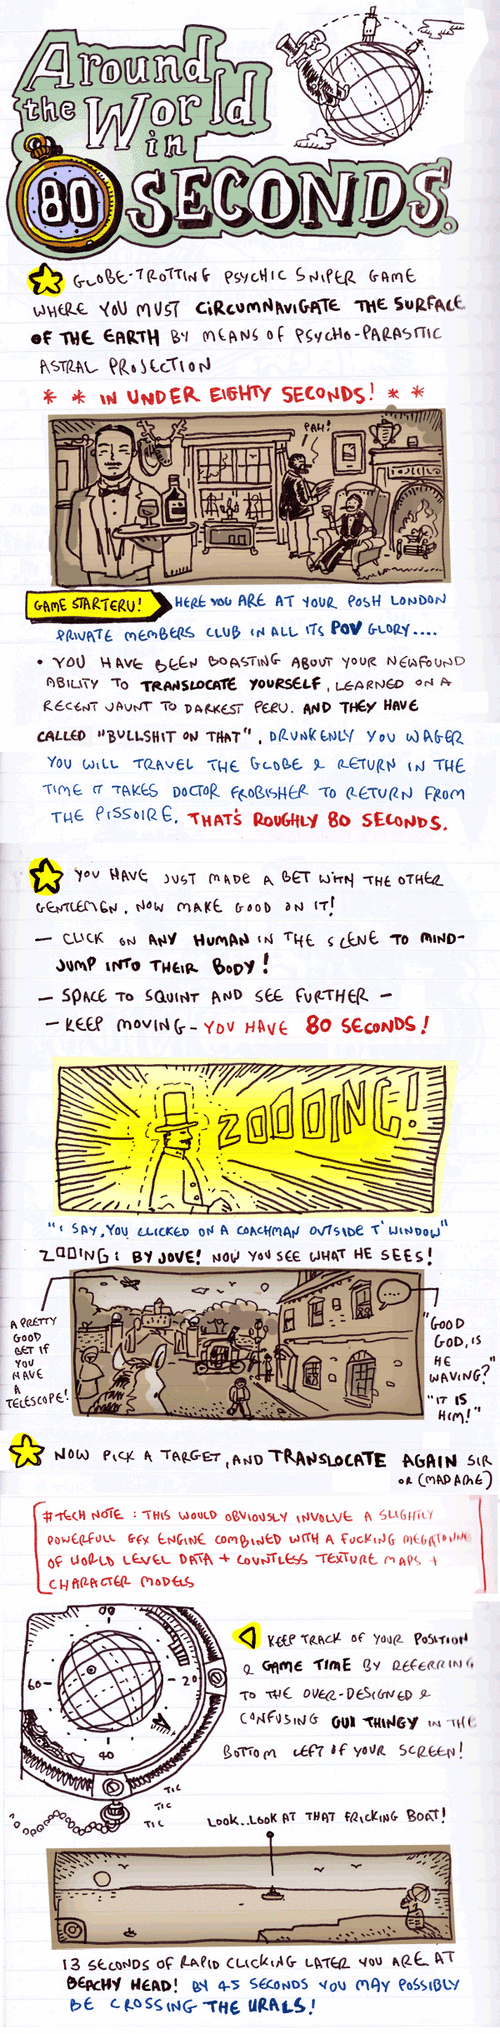 Around
the World
in
80 SECONDS.
GLOBE-TROTTING PSYCHIC SNIPER GAME
WHERE YOU MUST CIRCUMNAVIGATE THE SURFACE
OF THE EARTH BY MEANS OF PSYCHO-PARASITIC
ASTRAL PROJECTION
* * IN UNDER EIGHTY SECONDS! * *
PAH!
GAME STARTERU! HERE YOU ARE AT YOUR POSH LONDON
PRIVATE MEMBERS CLUB IN ALL ITS POV GLORY....
• YOU HAVE BEEN BOASTING ABOUT YOUR NEWFOUND
ABILITY TO TRANSLOCATE YOURSELF, LEARNED ON A
RECENT JAUNT TO DARKEST PERU. AND THEY HAVE
CALLED "BULLSHIT ON THAT", DRUNKENLY YOU WAGER
YOU WILL TRAVEL THE GLOBE & RETURN IN THE
TIME IT TAKES DOCTOR FROBISHER TO RETURN FROM
THE PISSOIRE. THAT'S ROUGHLY 80 SECONDS.
YOU HAVE JUST MADE A BET WITH THE OTHER
GENTLEMEN, NOW MAKE GOOD ON IT!
— CLICK ON ANY HUMAN IN THE SCENE TO MIND-
JUMP INTO THEIR BODY!
— SPACE TO SQUINT AND SEE FURTHER —
— KEEP MOVING - YOU HAVE 80 SECONDS!
ZOOOING!
"I SAY, YOU CLICKED ON A COACHMAN OUTSIDE T' WINDOW"
ZOOING! BY JOVE! NOW YOU SEE WHAT HE SEES!
A PRETTY
GOOD
BET IF
YOU
HAVE
A
TELESCOPE!
...
"GOOD
GOD, IS
HE
WAVING?"
"IT IS
HIM!"
NOW PICK A TARGET, AND TRANSLOCATE AGAIN SIR
OR (MADAME)
#TECH NOTE : THIS WOULD OBVIOUSLY INVOLVE A SLIGHTLY
POWERFULL GFX ENGINE COMBINED WITH A FUCKING MEGATONNE
OF WORLD LEVEL DATA + COUNTLESS TEXTURE MAPS +
CHARACTER MODELS
60
20
40
KEEP TRACK OF YOUR POSITION
& GAME TIME BY REFERRING
TO THE OVER-DESIGNED &
CONFUSING GUI THINGY IN THE
BOTTOM LEFT OF YOUR SCREEN!
TIC
TIC
TIC
LOOK..LOOK AT THAT FRICKING BOAT!
13 SECONDS OF RAPID CLICKING LATER YOU ARE AT
BEACHY HEAD! BY 45 SECONDS YOU MAY POSSIBLY
BE CROSSING THE URALS!